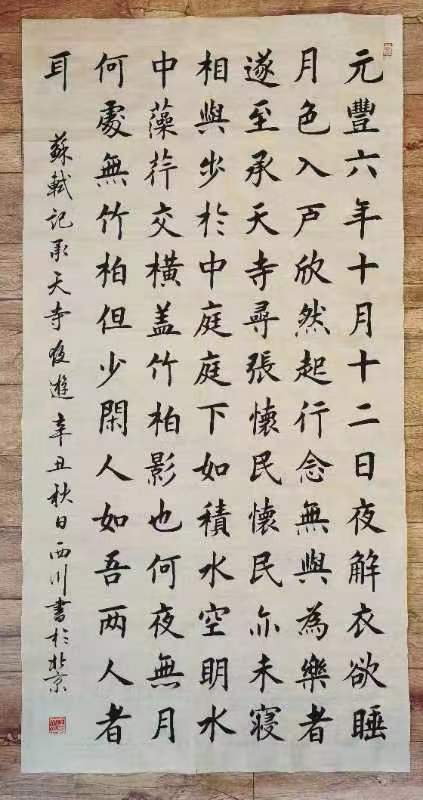 元豐六年十月十二日夜解衣欲睡
月色入户欣然起行念無與為樂者
遂至承天寺尋張懷民懷民亦未寢
相與步於中庭庭下如積水空明水
中藻荇交橫盖竹柏影也何夜無月
何處無竹柏但少閑人如吾两人者
耳
蘇軾記承天寺夜遊辛丑秋日西川書於北京